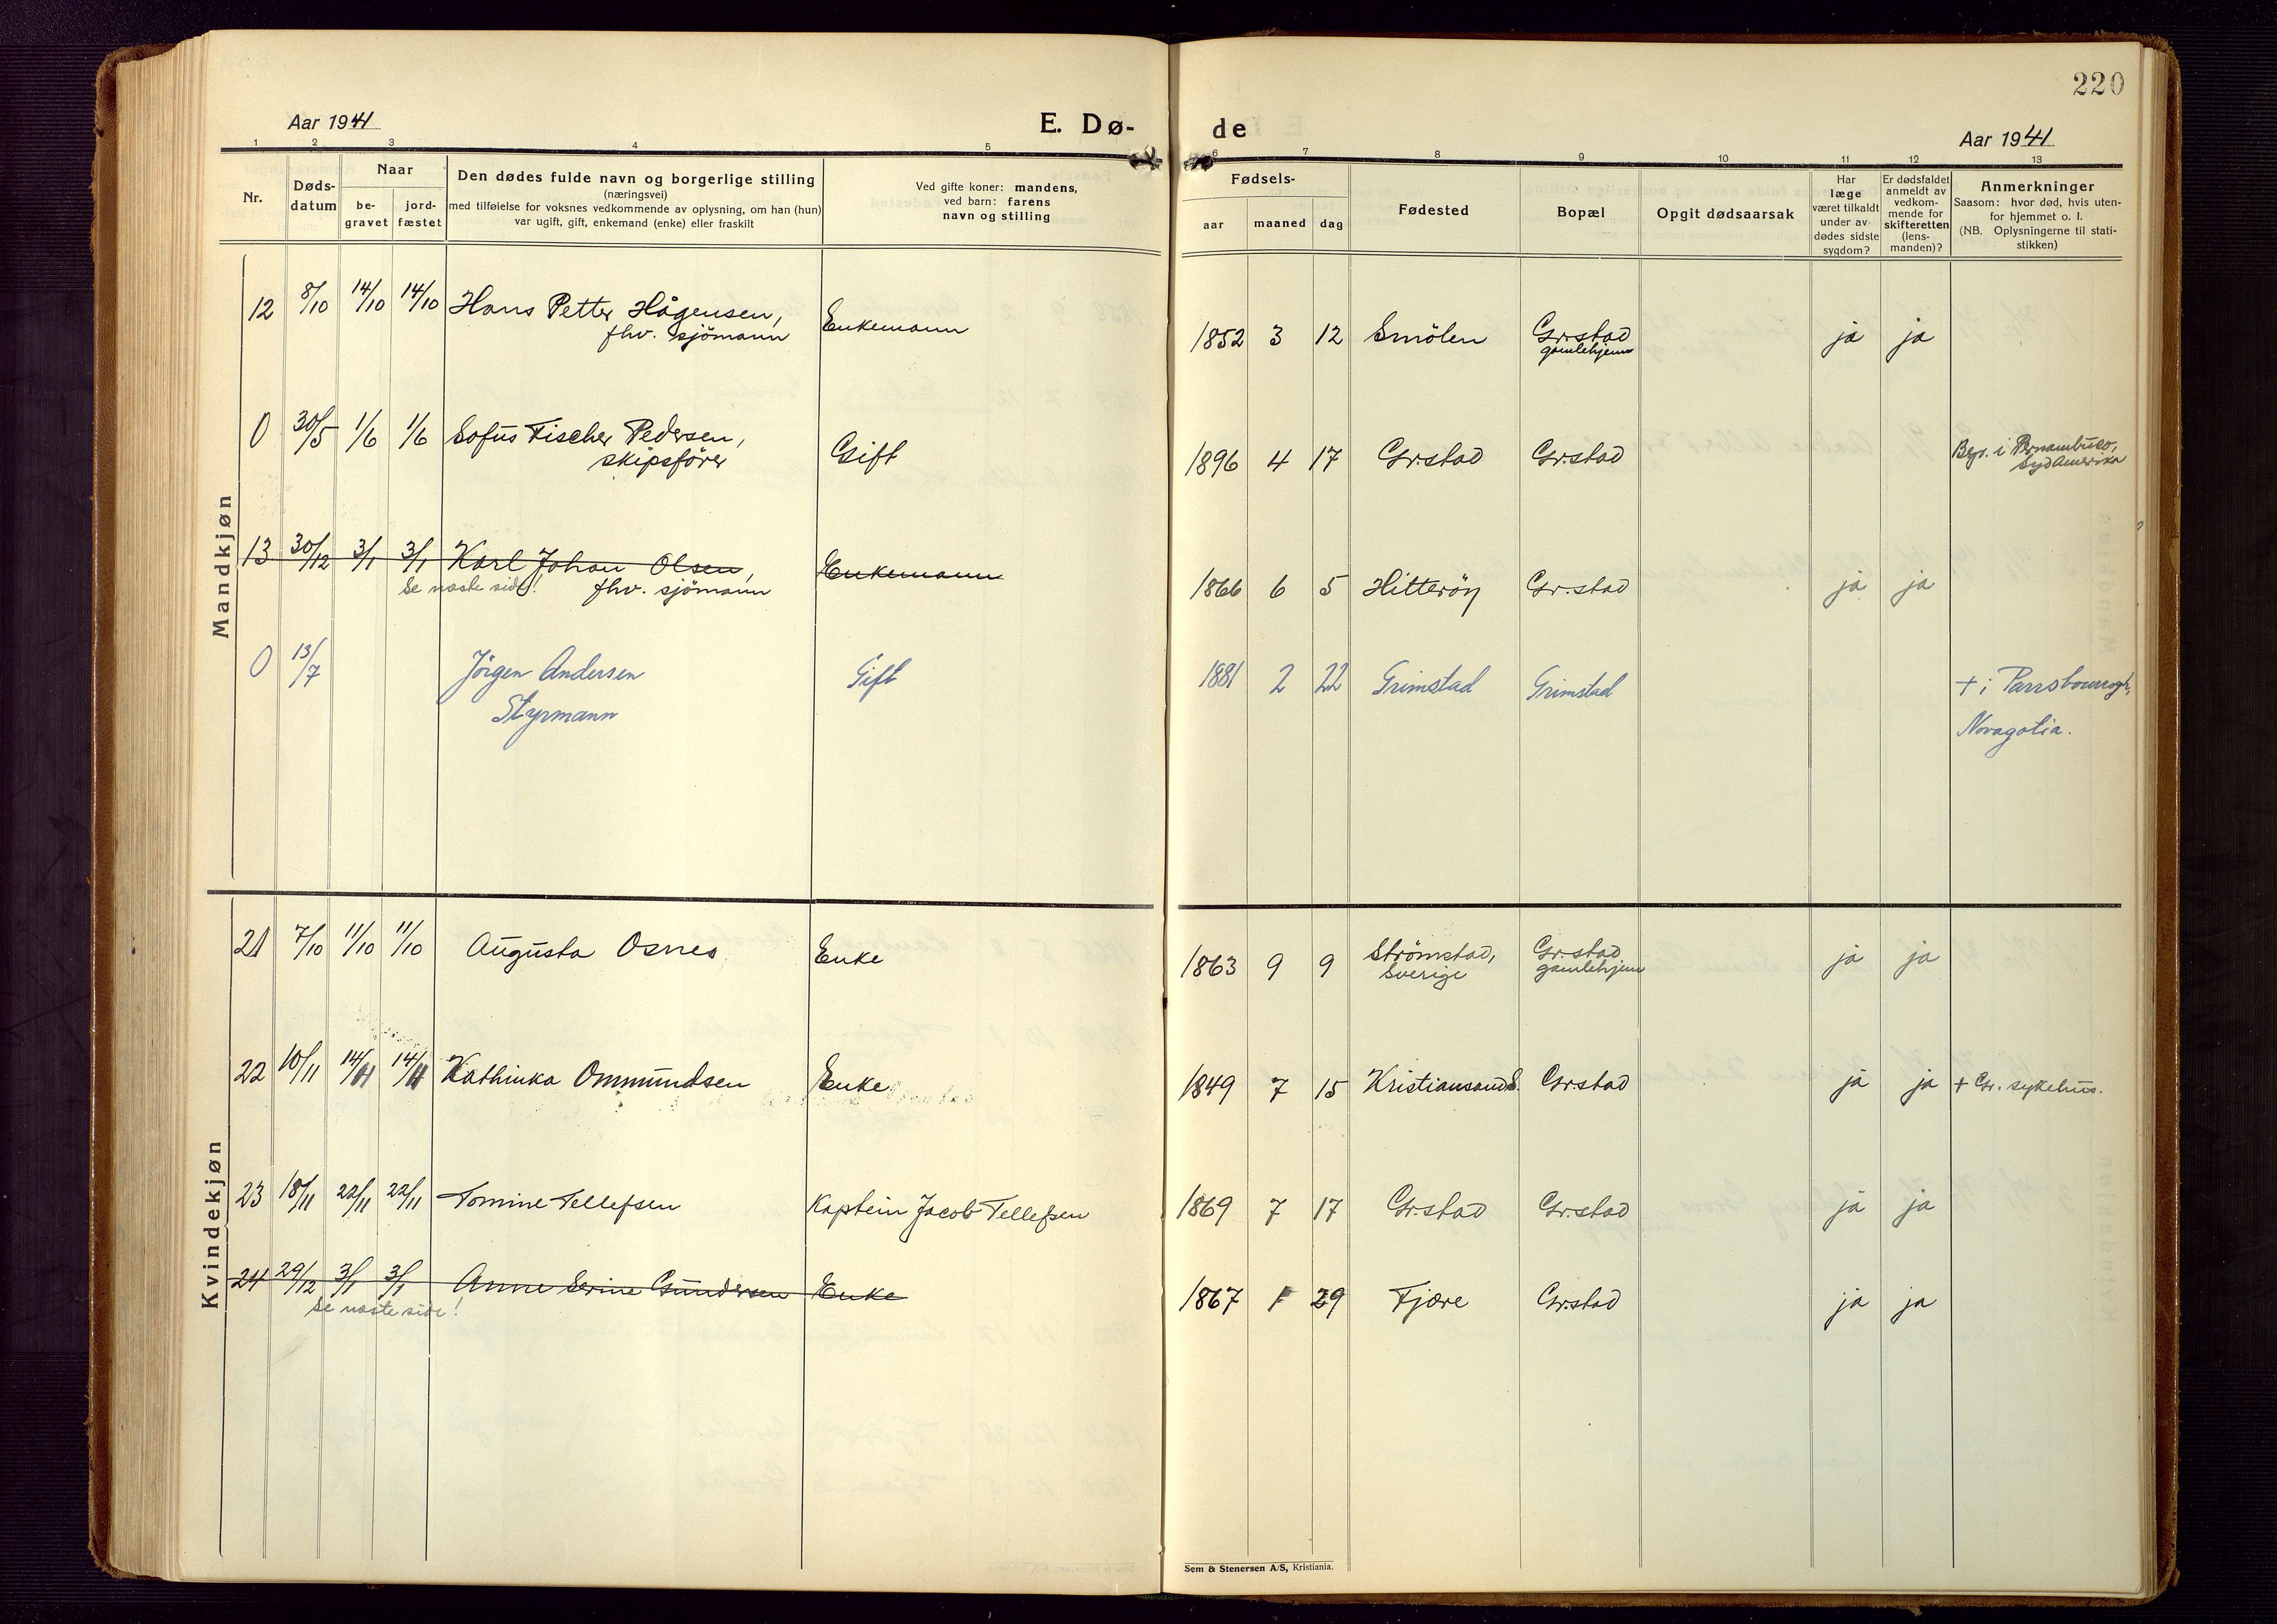 220
Aar 1941
E. Dø-
de
Aar 1941
1 2 3 4 5 6 7 8 9 10 11 12 13
Nr.
Døds-
datum
Naar
be-
gravet
jord-
fæstet
Den dødes fulde navn og borgerlige stilling
(næringsvei)
med tilføielse for voksnes vedkommende av oplysning, om han (hun)
var ugift, gift, enkemand (enke) eller fraskilt
Ved gifte koner: mandens,
ved barn: farens
navn og stilling
Fødsels-
aar maaned dag
Fødested
Bopæl
Opgit dødsaarsak
Har
læge
været tilkaldt
under av-
dødes sidste
sygdom?
Er dødsfaldet
anmeldt av
vedkom-
mende for
skifteretten
(lens-
manden)?
Anmerkninger
Saasom: hvor död, hvis uten-
for hjemmet o. l.
(NB. Oplysningerne til stati-
stikken)
Mandkjøn
12 8/10 14/10 14/10 Hans Petter Hågensen, Enkemann 1852 3 12 Smölen Gr.stad ja ja
fhv. sjömann gamlehjem
0 30/5 1/6 1/6 Sofus Fischer Pedersen, Gift 1896 4 17 Gr.stad Gr.stad Begr. i Pernambuco,
skipsförer Syd Amerika
13 30/12 3/1 3/1 Karl Johan Olsen, Enkemann 1866 6 5 Hitteröy Gr.stad ja ja
Se næste side! fhv. sjömann
0 13/7 Jörgen Andersen Gift 1881 2 22 Grimstad Grimstad + i Parrsbourogh,
Styrmann Novagotia.
Kvindekjøn
21 7/10 11/10 11/10 Augusta Osnes Enke 1863 9 9 Strömstad, Gr.stad ja ja
Sverige gamlehjem
22 10/11 14/11 14/11 Kathinka Ommundsen Enke 1849 7 15 Kristiansand S. Gr.stad ja ja + Gr. sykehus.
23 18/11 22/11 22/11 Tomine Tellefsen Kaptein Jacob Tellefsen 1869 7 17 Gr.stad Gr.stad ja ja
24 29/12 3/1 3/1 Anne Serine Gundersen Enke 1867 1 29 Fjære Gr.stad ja ja
Se næste side!
Sem & Stenersen A/S, Kristiania.